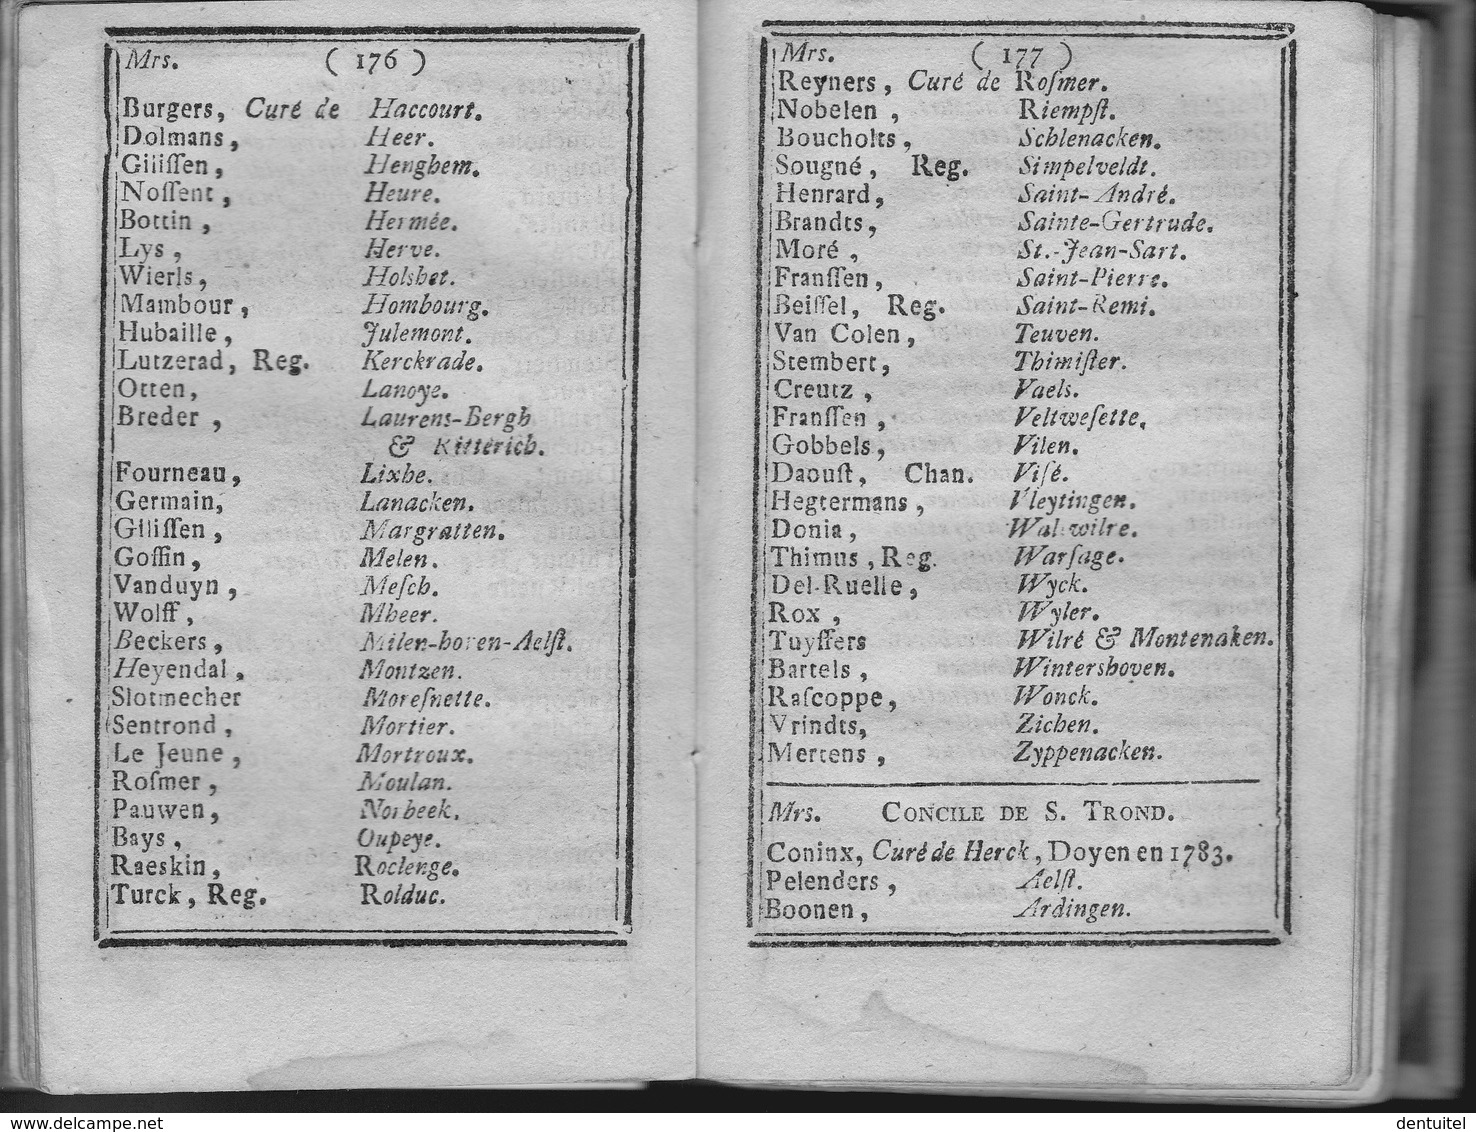 Mrs. ( 176 )
Burgers, Curé de Haccourt.
Dolmans, Heer.
Giliſſen, Henghem.
Noſſent, Heure.
Bottin, Hermée.
Lys, Herve.
Wierls, Holsbet.
Mambour, Hombourg.
Hubaille, Julemont.
Lutzerad, Reg. Kerckrade.
Otten, Lanoye.
Breder, Laurens-Bergh
& Kitterich.
Fourneau, Lixhe.
Germain, Lanacken.
Giliſſen, Margratten.
Goſſin, Melen.
Vanduyn, Meſch.
Wolff, Mheer.
Beckers, Milen-boven-Aelſt.
Heyendal, Montzen.
Slotmecher Moreſnette.
Sentrond, Mortier.
Le Jeune, Mortroux.
Roſmer, Moulan.
Pauwen, Norbeek.
Bays, Oupeye.
Raeskin, Roclenge.
Turck, Reg. Rolduc.
Mrs. ( 177 )
Reyners, Curé de Roſmer.
Nobelen, Riempſt.
Boucholts, Schlenacken.
Sougné, Reg. Simpelveldt.
Henrard, Saint-André.
Brandts, Sainte-Gertrude.
Moré, St.-Jean-Sart.
Franſſen, Saint-Pierre.
Beiſſel, Reg. Saint-Remi.
Van Colen, Teuven.
Stembert, Thimiſter.
Creutz, Vaels.
Franſſen, Veltweſette.
Gobbels, Vilen.
Daouſt, Chan. Viſé.
Hegtermans, Vleytingen.
Donia, Wal-wilre.
Thimus, Reg. Warſage.
Del-Ruelle, Wyck.
Rox, Wyler.
Tuyſſers Wilré & Montenaken.
Bartels, Wintershoven.
Raſcoppe, Wonck.
Vrindts, Zichen.
Mertens, Zyppenacken.
Mrs. CONCILE DE S. TROND.
Coninx, Curé de Herck, Doyen en 1783.
Pelenders, Aelſt.
Boonen, Ardingen.
dentuitel